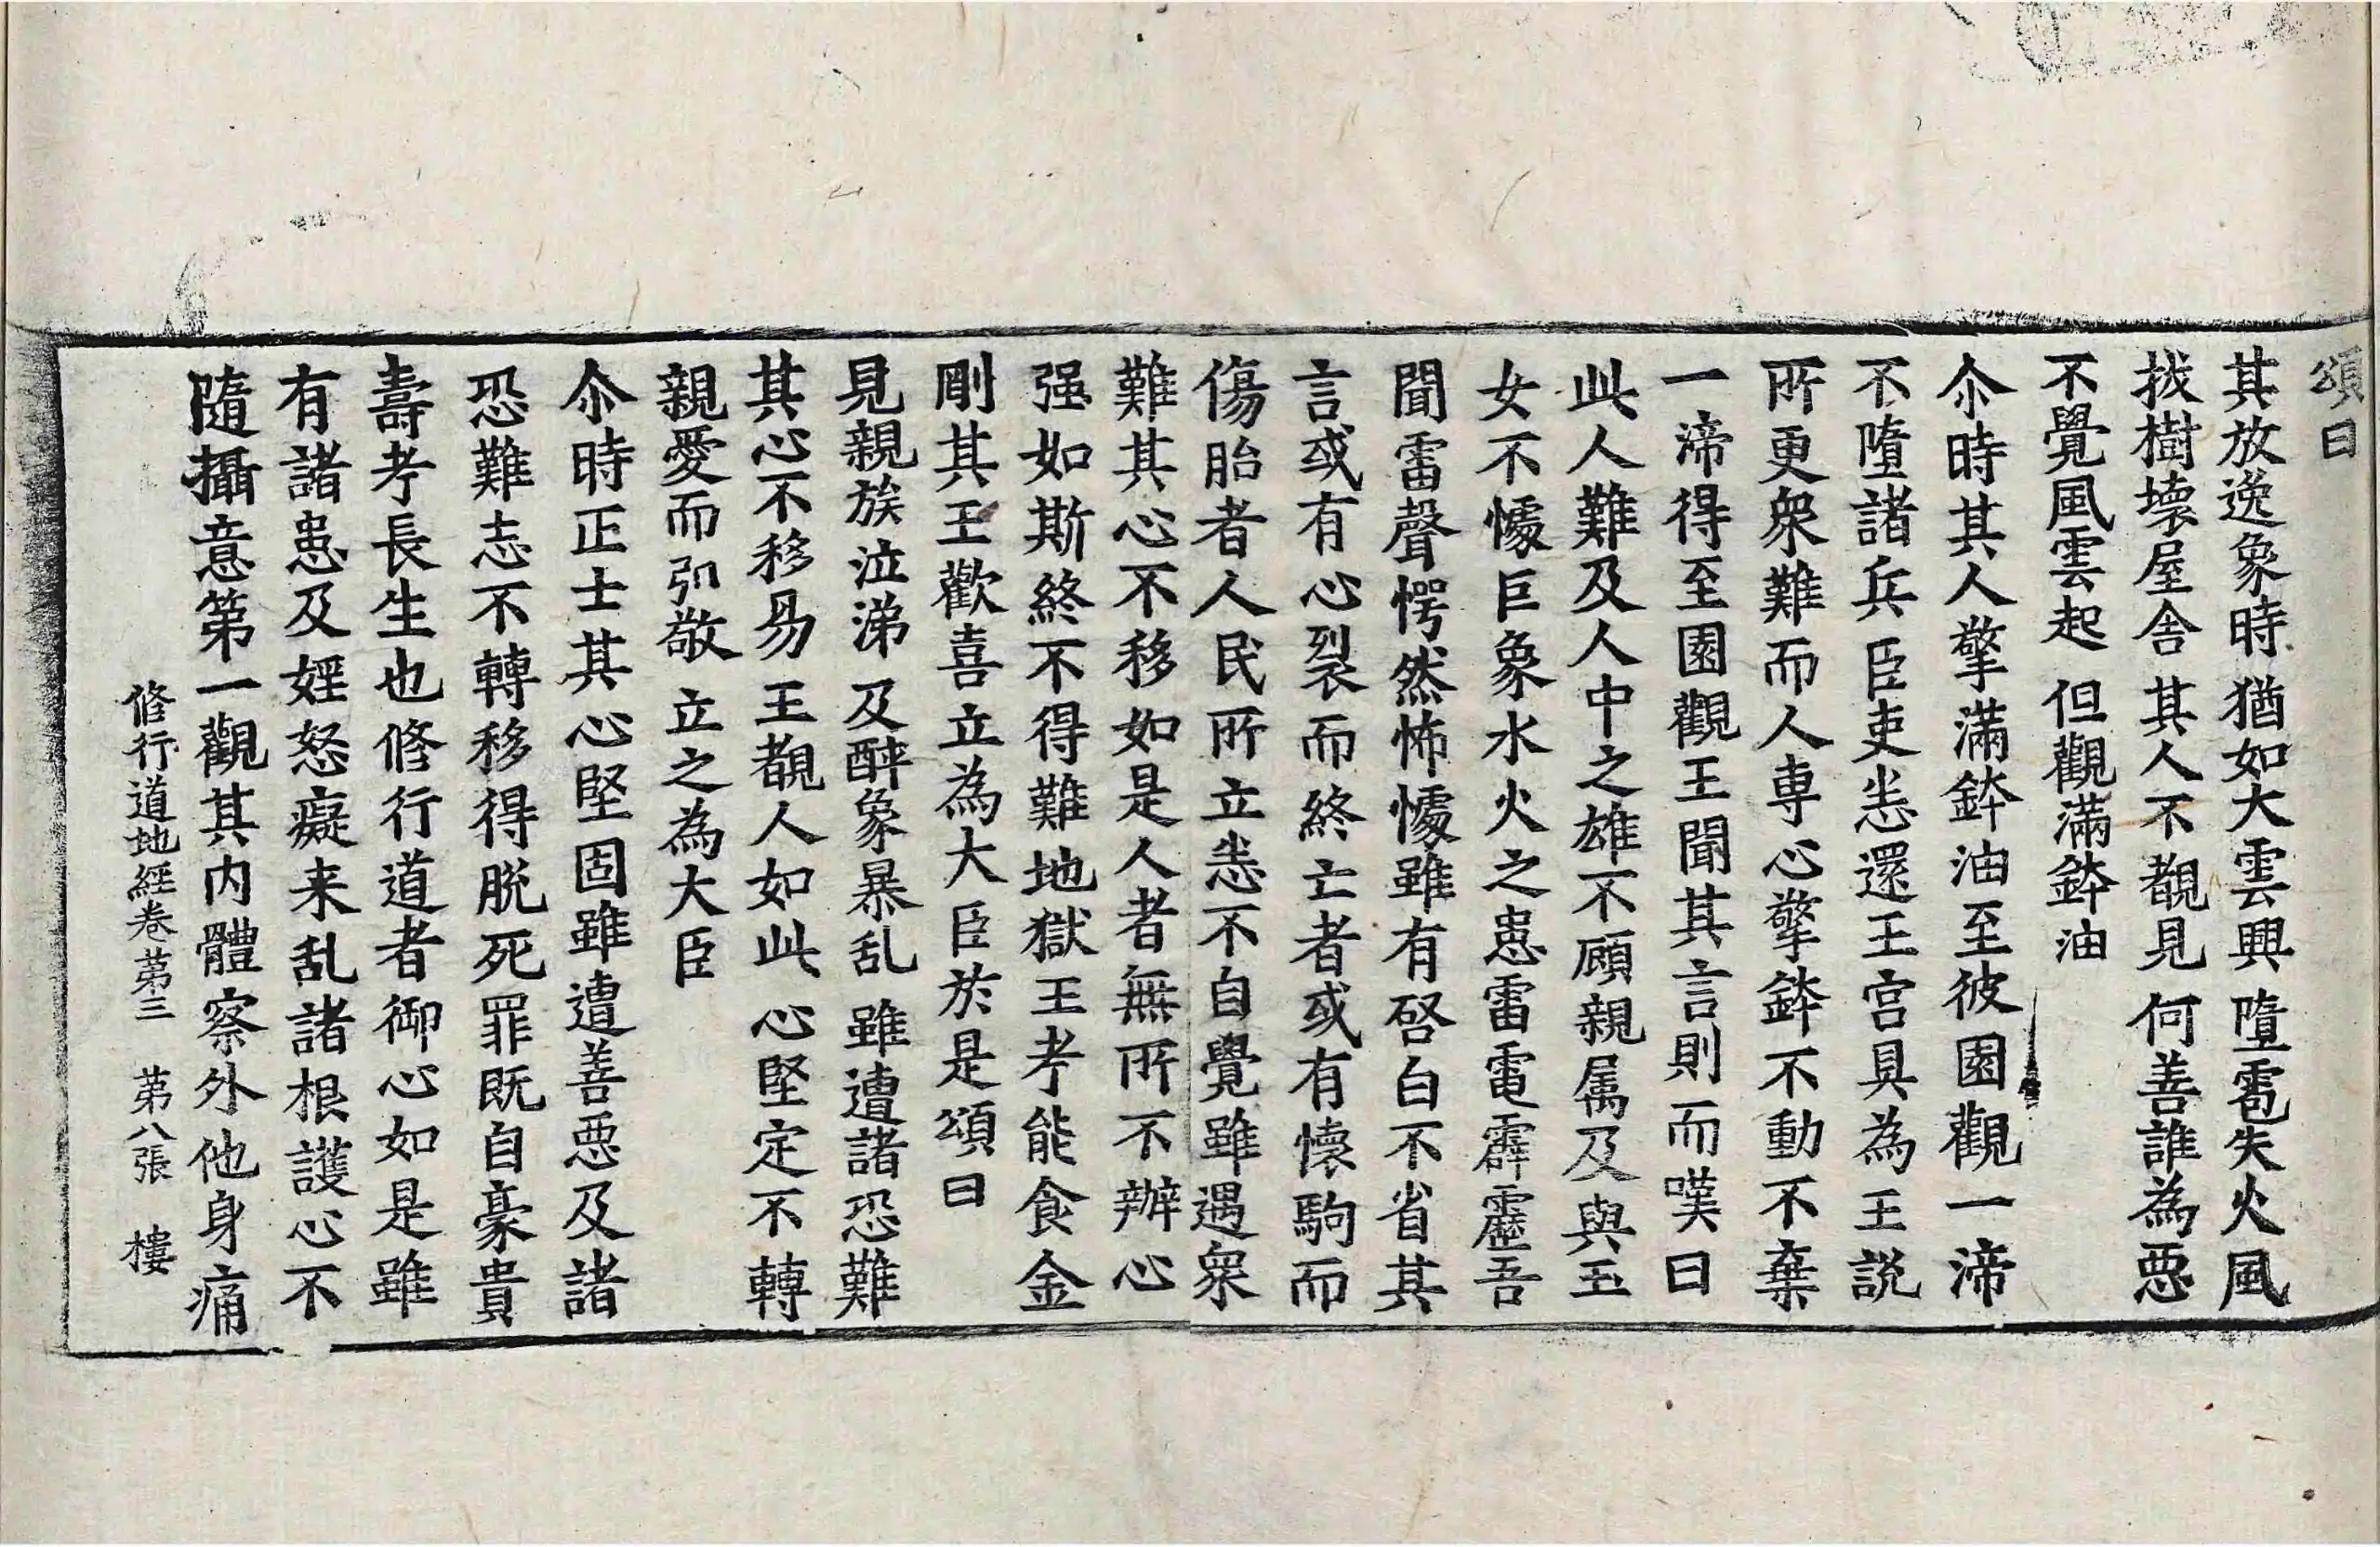 頌曰
其放逸象時 猶如大雲興 墮雹失火風
拔樹壞屋舍 其人不覩見 何善誰為惡
不覺風雲起 但觀滿鉢油
尒時其人擎滿鉢油至彼園觀一渧
不墮諸兵臣吏悉還王宮具為王説
所更衆難而人專心擎鉢不動不棄
一渧得至園觀王聞其言則而嘆曰
此人難及人中之雄不顧親属及與玉
女不懅巨象水火之患雷電霹靂吾
聞雷聲愕然怖懅雖有啓白不省其
言或有心裂而終亡者或有懷駒而
傷胎者人民所立悉不自覺雖遇衆
難其心不移如是人者無所不辦心
强如斯終不得難地獄王考能食金
剛其王歡喜立為大臣於是頌曰
見親族泣涕 及醉象暴乱 雖遭諸恐難
其心不移易 王覩人如此 心堅定不轉
親愛而弘敬 立之為大臣
尒時正士其心堅固雖遭善惡及諸
恐難志不轉移得脱死罪既自豪貴
壽考長生也修行道者御心如是雖
有諸患及婬怒癡来乱諸根護心不
隨攝意第一觀其内體察外他身痛
修行道地經卷第三 第八張 樓